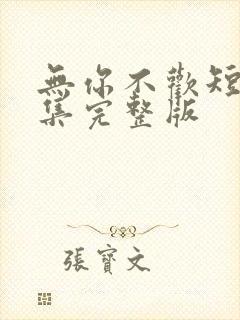 無你不歡短
集完整版
張寶文